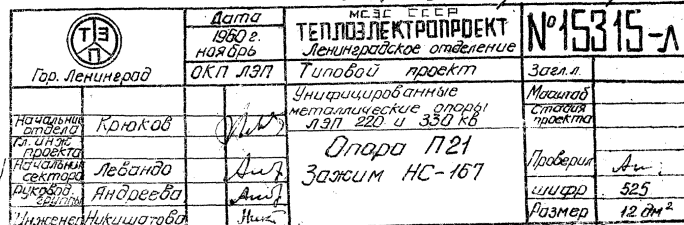 ТЭП
Гор. Ленинград
Дата
1960 г.
ноябрь
ОКП ЛЭП
МСЭС СССР
ТЕПЛОЭЛЕКТРОПРОЕКТ
Ленинградское отделение
№15315-Л
Типовой проект
Загл.л.
Унифицированные
металлические опоры
ЛЭП 220 и 330 кВ
Опора П21
Зажим НС-167
Масштаб
Стадия
проекта
Начальник
отдела
Крюков
Гл. инж.
проекта
Начальник
сектора
Левандо
Руковод.
группы
Андреева
Инженер
Никишатова
Проверил
шифр
525
Размер
12 дм²